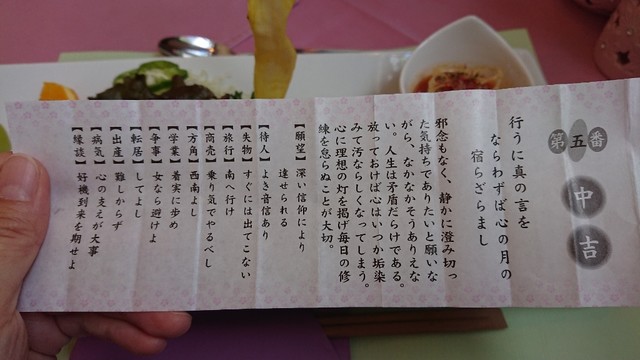 第五番 中吉
行うに真の言を
ならわずば心の月の
宿らざらまし
邪念もなく、静かに澄み切っ
た気持ちでありたいと願いな
がら、なかなかそうありえな
い。人生は矛盾だらけである。
放っておけば心はいつか垢染
みて汚ならしくなってしまう。
心に理想の灯を掲げ毎日の修
練を怠らぬことが大切。
【願望】深い信仰により
達せられる
【待人】よき音信あり
【失物】すぐには出てこない
【旅行】南へ行け
【商売】乗り気でやるべし
【方角】西南よし
【学業】着実に歩め
【争事】女なら避けよ
【転居】してよし
【出産】難しからず
【病気】心の支えが大事
【縁談】好機到来を期せよ